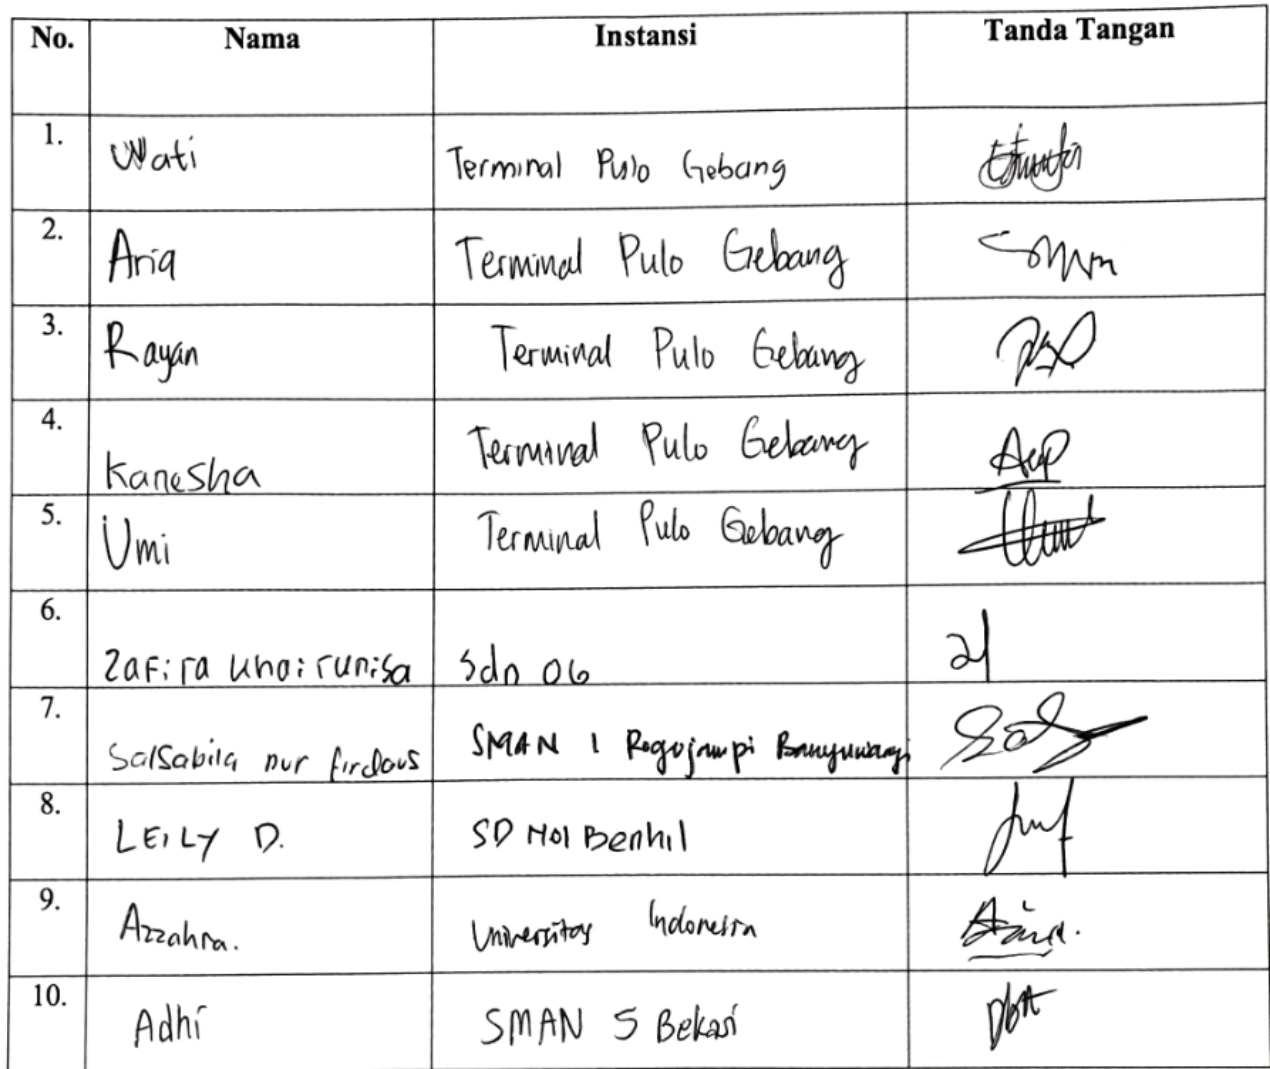 No. Nama Instansi Tanda Tangan
1. Wati Terminal Pulo Gebang
2. Aria Terminal Pulo Gebang
3. Rayan Terminal Pulo Gebang
4. Kanesha Terminal Pulo Gebang
5. Umi Terminal Pulo Gebang
6. Zafira khairunisa Sdn 06
7. Salsabila nur firdaus SMAN 1 Rogojampi Banyuwangi
8. LEILY D. SD N01 Benhil
9. Azzahra. Universitas Indonesia
10. Adhi SMAN 5 Bekasi